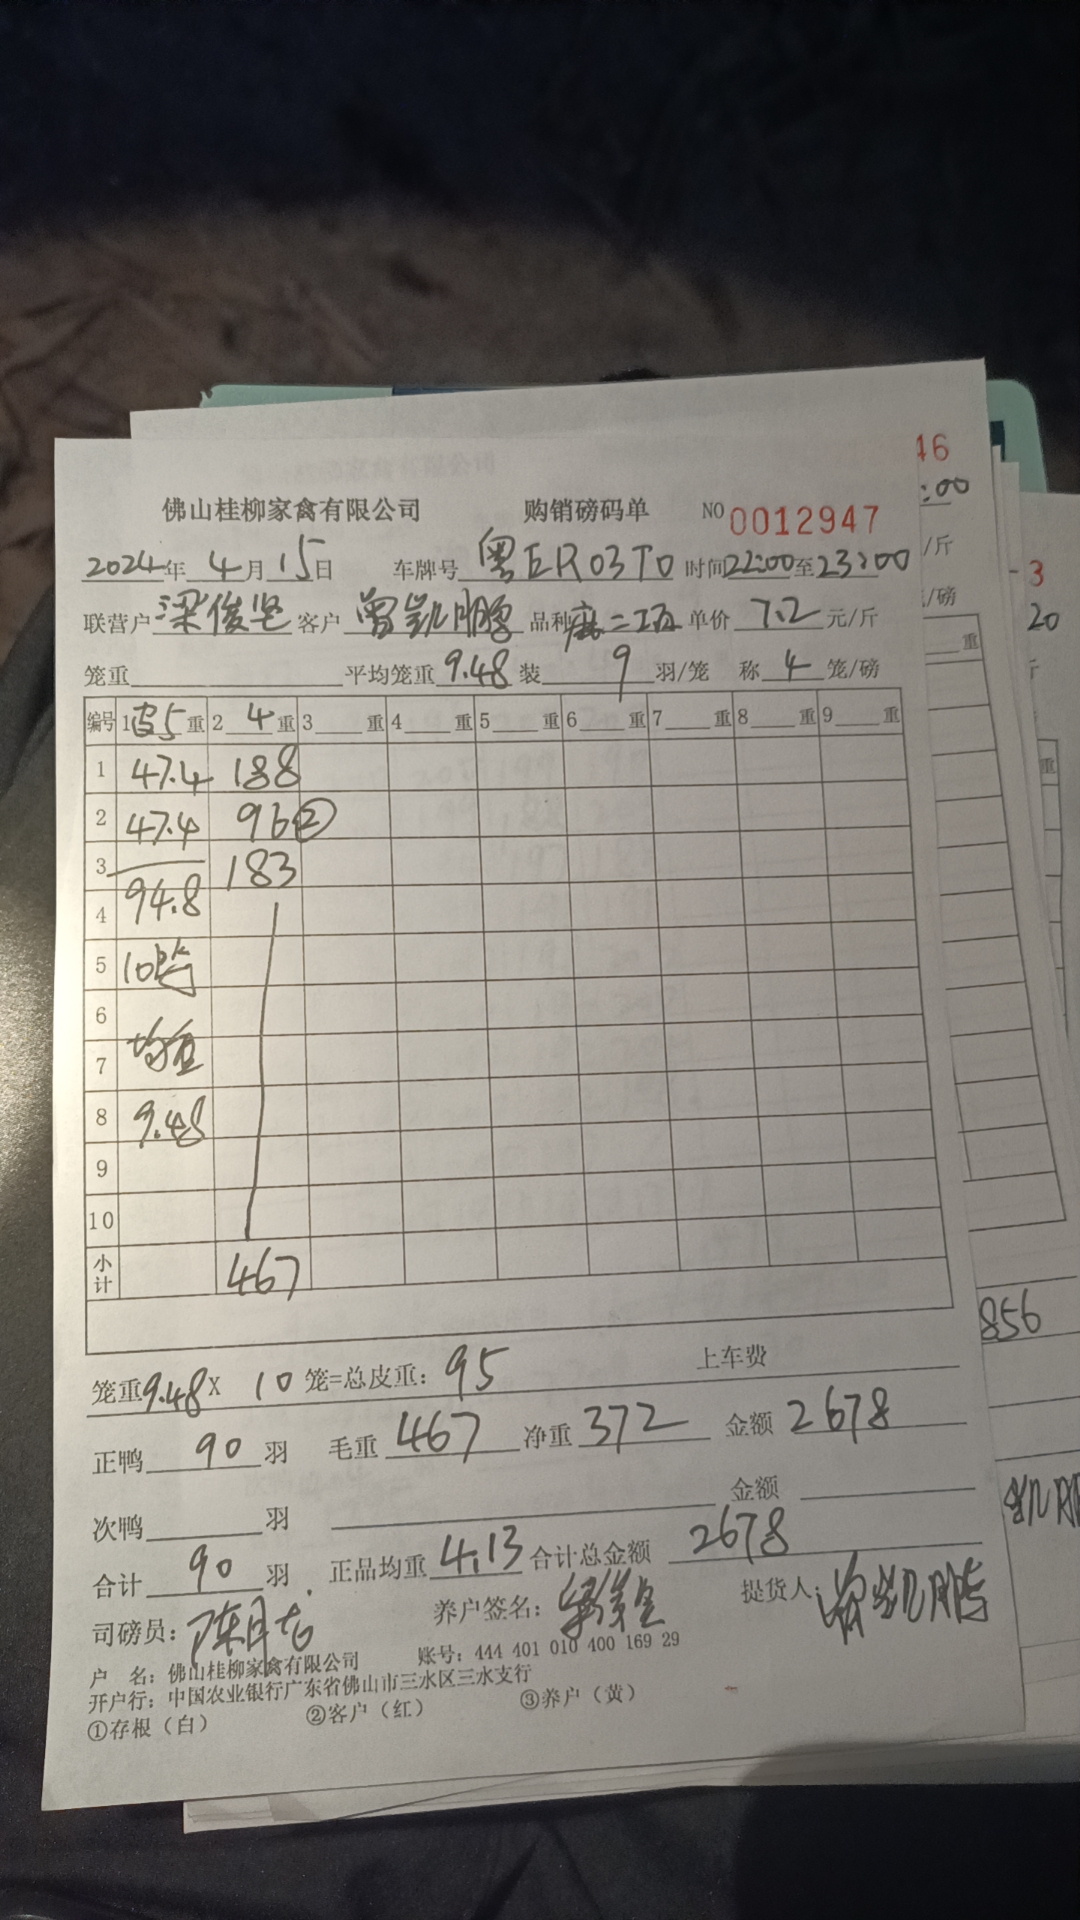 佛山桂柳家禽有限公司 购销磅码单 NO 0012947
2024年 4月 15日 车牌号 粤ER03T0 时间22:00至23:00
联营户 梁俊坚 客户 曾凯鹏 品种 麻二 单价 7.2 元/斤
笼重 平均笼重 9.48 装 9 羽/笼 称 4 笼/磅
编号 1皮5重 2 4 重 3 重 4 重 5 重 6 重 7 重 8 重 9 重
1 47.4 188
2 47.4 96②
3 183
4 94.8
5 10只
6
7 均重
8 9.48
9
10
小计 467
笼重9.48X 10 笼=总皮重: 95 上车费
正鸭 90 羽 毛重 467 净重 372 金额 2678
次鸭 羽 金额
合计 90 羽. 正品均重 4.13 合计总金额 2678
司磅员: 陈 养户签名: 提货人: 曾凯鹏
户 名: 佛山桂柳家禽有限公司 账号: 444 401 010 400 169 29
开户行: 中国农业银行广东省佛山市三水区三水支行
①存根(白) ②客户(红) ③养户(黄)
46
:00
/斤
/磅
重
3
20
重
856
凯鹏